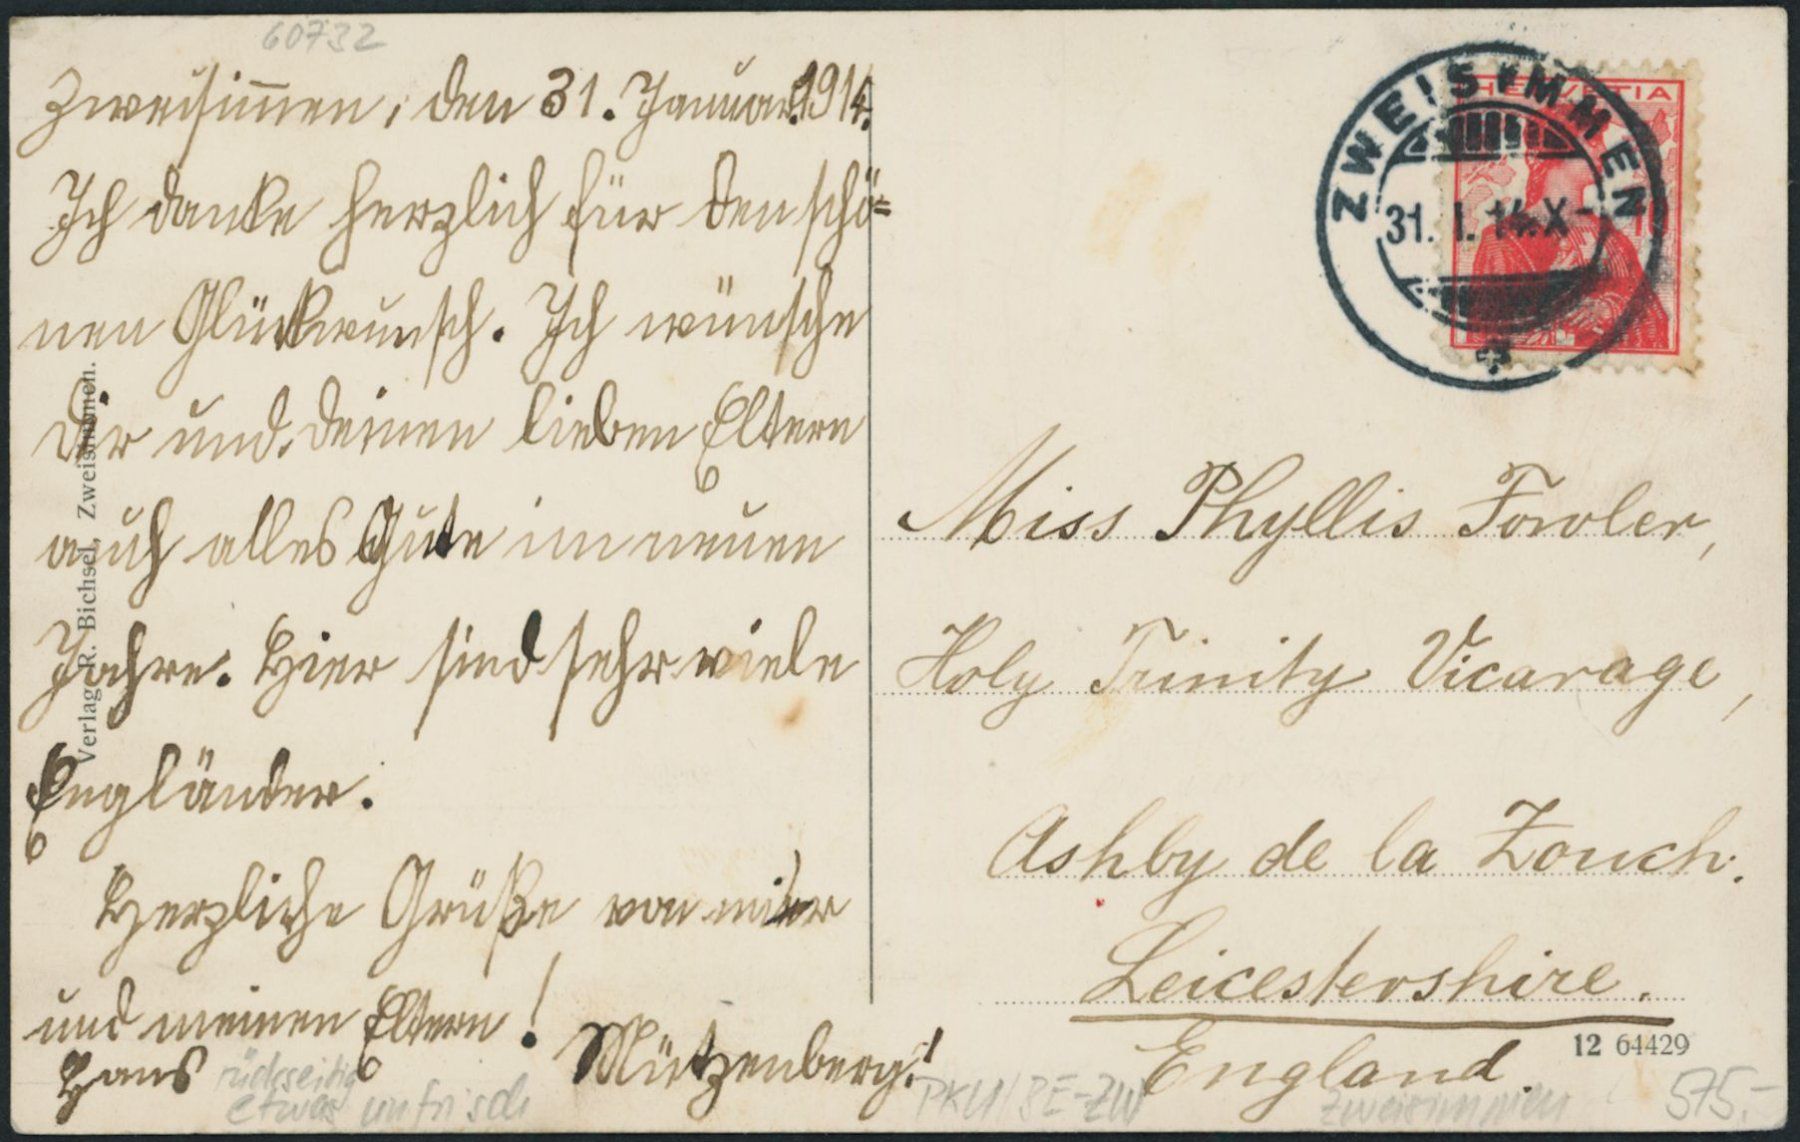 60732
Zweisimmen, den 31. Januar 1914.
Ich danke herzlich für den schö=
nen Glückwunsch. Ich wünsche
Dir und deinen lieben Eltern
auch alles Gute im neuen
Jahre. Hier sind sehr viele
Engländer.
Herzliche Grüße von mir
und meinen Eltern!
Hans Mützenberg!
rückseitig
etwas unfrisch
Verlag R. Bichsel, Zweisimmen.
ZWEISIMMEN
31. I. 14. X-
HELVETIA
10
Miss Phyllis Fowler,
Holy Trinity Vicarage,
Ashby de la Zouch.
Leicestershire.
England.
12 64429
BE-ZW
Zweisimmen
575.-